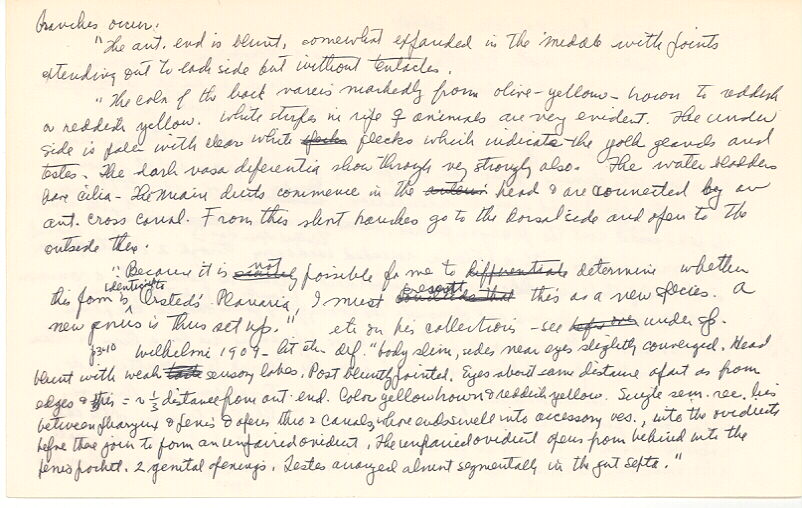 branches occur.
"The ant. end is blunt, somewhat expanded in the middle with points
extending out to each side but without tentacles.
"The color of the back varies markedly from olive-yellow-brown to reddish
or reddish yellow. White stripes in ripe ♀ animals are very evident. The under
side is pale with clear white flecks flecks which indicate the yolk glands and
testes. The dark vasa diferentia show through very strongly also. The water bladders
have cilia - The main ducts commence in the anterior head & are connected by an
ant. cross canal. From this short branches go to the dorsal side and open to the
outside there.
"Because it is not possible for me to differentiate determine whether
this form is identical with Ørsted's Planaria, I must this as a new species. A
new genus is thus set up." etc on his collections - see under sp.
33-10 Wilhelmi 1909 - Lit ch. def. "body slim, sides near eyes slightly converged. Head
blunt with weak sensory lobes. Post bluntly pointed. Eyes about same distance apart as from
edges & this = ~ 1/3 distance from ant. end. Color yellow brown & reddish yellow. Single sem. rec. lies
between pharynx & penis & opens thro 2 canals, whose ends swell into accessory ves., into the oviducts
before these join to form an unpaired oviduct. The unpaired oviduct opens from behind into the
penis pocket. 2 genital openings. Testes arranged almost segmentally in the gut septa."